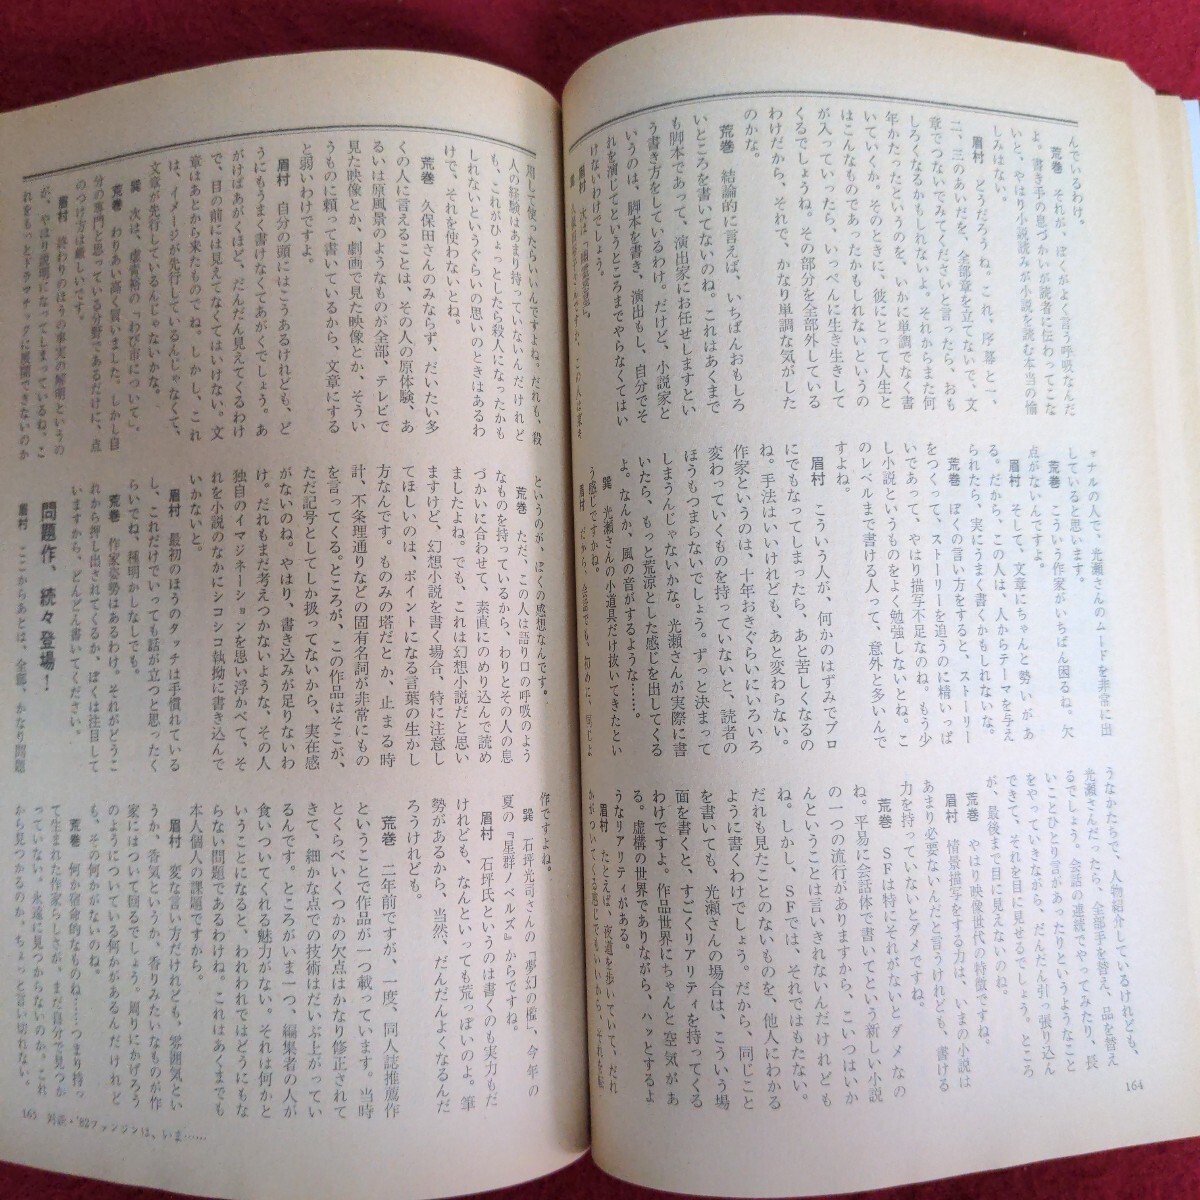 んでいるわけ。
荒巻　それが、ぼくがよく言う呼吸なんだ
よ。書き手の息づかいが読者に伝わってこな
いと、やはり小説読みが小説を読む本当の愉
しみはない。
眉村　どうだろうね。これ、序幕と一、
二、三のあいだを、全部章を立てないで、文
章でつないでみてくださいと言ったら、おも
しろくなるかもしれないよ。それからまた何
年かたったというのを、いかに単調でなく書
いていくか。そのときに、彼にとって人生と
はこんなものであったかもしれないというの
が入っていったら、いっぺんに生き生きして
くるでしょうね。その部分を全部外している
わけだから、それで、かなり単調な気がした
のかな。
荒巻　結論的に言えば、いちばんおもしろ
いところを書いてないのね。これはあくまで
も脚本であって、演出家にお任せしますとい
う書き方をしているわけ。だけど、小説家と
いうのは、脚本を書き、演出もし、自分でそ
れを演じてというところまでやらなくてはい
けないわけでしょう。
眉村　次は「幽霊物語」
ャナルの人で、光瀬さんのムードを非常に出
していると思います。
荒巻　こういう作家がいちばん困るね。欠
点がないんですよ。
眉村　そして、文章にちゃんと勢いがあ
る。だから、この人は、人からテーマを与え
られたら、実にうまく書くかもしれないな。
荒巻　ぼくの言い方をすると、ストーリー
をつくって、ストーリーを追うのに精いっぱ
いであって、やはり描写不足なのね。もう少
し小説というものをよく勉強しないとね。こ
のレベルまで書ける人って、意外と多いんで
すよね。
眉村　こういう人が、何かのはずみでプロ
にでもなってしまったら、あと苦しくなるの
ね。手法はいいけれども、あと変わらない。
作家というのは、十年おきぐらいにいろいろ
変わっていくものを持っていないと、読者の
ほうもつまらないでしょう。ずっと決まって
しまうんじゃないかな。光瀬さんが実際に書
いたら、もっと荒涼とした感じを出してくる
よ。なんか、風の音がするような……。
巽　光瀬さんの小道具だけ抜いてきたとい
う感じですかね。
眉村　だから、会話でも、初めに、同じよ
うなかたちで、人物紹介しているけれども、
光瀬さんだったら、全部手を替え、品を替え
るでしょう。会話の連続でやってみたり、長
いことひとり言があったりというようなこと
をやっていきながら、だんだん引っ張り込ん
できて、それを目に見せるでしょう。ところ
が、最後まで目に見えないのね。
荒巻　やはり映像世代の特徴ですね。
眉村　情景描写をする力は、いまの小説は
あまり必要ないんだと言うけれども、書ける
力を持っていないとダメですね。
荒巻　ＳＦは特にそれがないとダメなの
ね。平易に会話体で書いてという新しい小説
の一つの流行がありますから、こいつはいか
んということは言いきれないんだけれども
ね。しかし、ＳＦでは、それではもたない。
だれも見たことのないものを、他人にわかる
ように書くわけでしょう。だから、同じこと
を書いても、光瀬さんの場合は、こういう場
面を書くと、すごくリアリティを持ってくる
わけですよ。作品世界にちゃんと空気があ
る。虚構の世界でありながら、ハッとするよ
うなリアリティがある。
眉村　たとえば、夜道を歩いていて、だれ
かがついてくる感じでもいいから、それを転
164
用して使ったらいいんですよね。だれも、殺
人の経験はあまり持っていないんだけれど
も、これがひょっとしたら殺人になったかも
しれないというぐらいの思いのときはあるわ
けで、それを使わないとね。
荒巻　久保田さんのみならず、だいたい多
くの人に言えることは、その人の原体験、あ
るいは原風景のようなものが全部、テレビで
見た映像とか、劇画で見た映像とか、そうい
うものに頼って書いているから、文章にする
と弱いわけですよ。
眉村　自分の頭にはこうあるけれども、ど
うにもうまく書けなくてあがくでしょう。あ
がけばあがくほど、だんだん見えてくるわけ
で、目の前には見えてなくてはいけない。文
章はあとから来たもので、ね。しかし、これ
は、イメージが先行しているんじゃなくて、
文章が先行しているんじゃないかな。
巽　次は、虚青裕の「わび市について」。
荒巻　わりあい高く買いました。しかし自
分の専門と思っている分野であるだけに、点
のつけ方は厳しいです。
眉村　終わりのほうの事実の解明というの
が、やはり説明になってしまっているね。こ
れをもっとドラマチックに展開できないのか
というのが、ぼくの感想なんです。
荒巻　ただ、この人は語り口の呼吸のよう
なものを持っているから、わりとその人の息
づかいに合わせて、素直にのめり込んで読め
ましたよね。でも、これは幻想小説だと思い
ますけど、幻想小説を書く場合、特に注意し
てほしいのは、ポイントになる言葉の生かし
方なんです。もの見の塔だとか、止まる時
計、不条理通りなどの固有名詞が非常にもの
を言ってくる。ところが、この作品はそこが、
ただ記号としてしか扱ってないから、実在感
がないのね。やはり、書き込みが足りないわ
け。だれもまだ考えつかないような、その人
独自のイマジネーションを思い浮かべて、そ
れを小説のなかにシコシコ執拗に書き込んで
いかないと。
眉村　最初のほうのタッチは手慣れている
し、これだけでいっても話が立つと思ったく
らいでね、種明かしなしでも。
荒巻　作家姿勢はあるわけ。それがどうこ
れから押し出されてくるか、ぼくは注目して
いますから、どんどん書いてください。
問題作、続々登場！
眉村　ここからあとは、全部、かなり問題
作ですよね。
巽　石坪光司さんの「夢幻の檻」、今年の
夏の『星群ノベルズ』からですね。
眉村　石坪氏というのは書くのも実力もだ
けれども、なんといっても荒っぽいのよ。筆
勢があるから、当然、だんだんよくなるんだ
ろうけれども。
荒巻　二年前ですが、一度、同人誌推薦作
ということで作品が一つ載っています。当時
とくらべいくつかの欠点はかなり修正されて
きて、細かな点での技術はだいぶ上がってい
るんです。ところがいま一つ、編集者の人が
食いついてくれる魅力がない。それは何かと
いうことになると、われわれではどうにもな
らない問題であるわけね。これはあくまでも
本人個人の課題ですから。
眉村　変な言い方だけれども、雰囲気とい
うか、香気というか、香りみたいなものが作
家にはついて回るでしょう。周りにかげろう
のようについている何かがあるんだけれど
も、その何かがないのね。
荒巻　何か宿命的なものね……つまり持っ
て生まれた作家らしさが、まだ自分で見つか
っていない。永遠に見つからないのか、これ
から見つかるのか、ちょっと言い切れない。
165　対談・'82ファンジンは、いま……